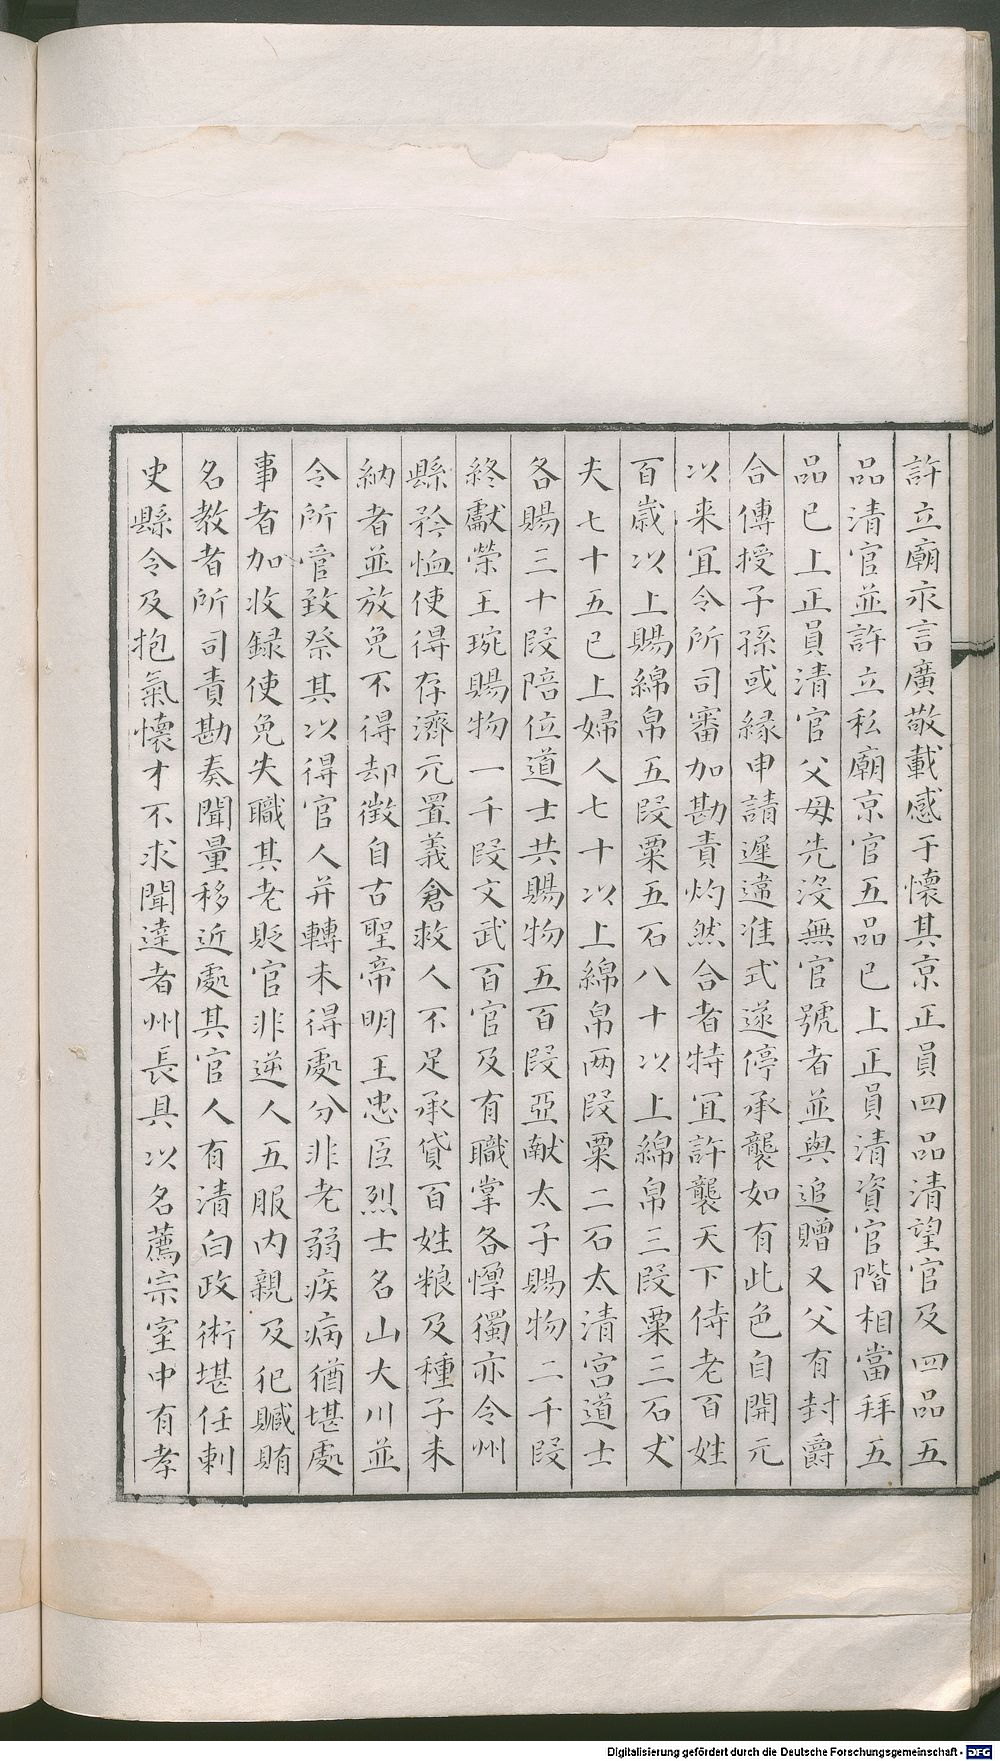 許立廟永言廣敬載感于懷其京正員四品清望官及四品五
品清官並許立私廟京官五品已上正員清資官階相當拜五
品已上正員清官父母先沒無官號者並與追贈又父有封爵
合傳授子孫或縁申請遲違准式遂停承襲如有此色自開元
以来宜令所司審加勘責灼然合者特宜許襲天下侍老百姓
百歲以上賜綿帛五段粟五石八十以上綿帛三段粟三石丈
夫七十五已上婦人七十以上綿帛兩段粟二石太清宮道士
各賜三十段陪位道士共賜物五百段亞献太子賜物二千段
終獻榮王琬賜物一千段文武百官及有職掌各惸獨亦令州
縣矜恤使得存濟元置義倉救人不足承貸百姓粮及種子未
納者並放免不得却徵自古聖帝明王忠臣烈士名山大川並
令所管致祭其以得官人并轉未得處分非老弱疾病猶堪處
事者加收録使免失職其老貶官非逆人五服内親及犯贓賄
名教者所司責勘奏聞量移近處其官人有清白政術堪任刺
史縣令及抱氣懷才不求聞達者州長具以名薦宗室中有孝
Digitalisierung gefördert durch die Deutsche Forschungsgemeinschaft - DFG